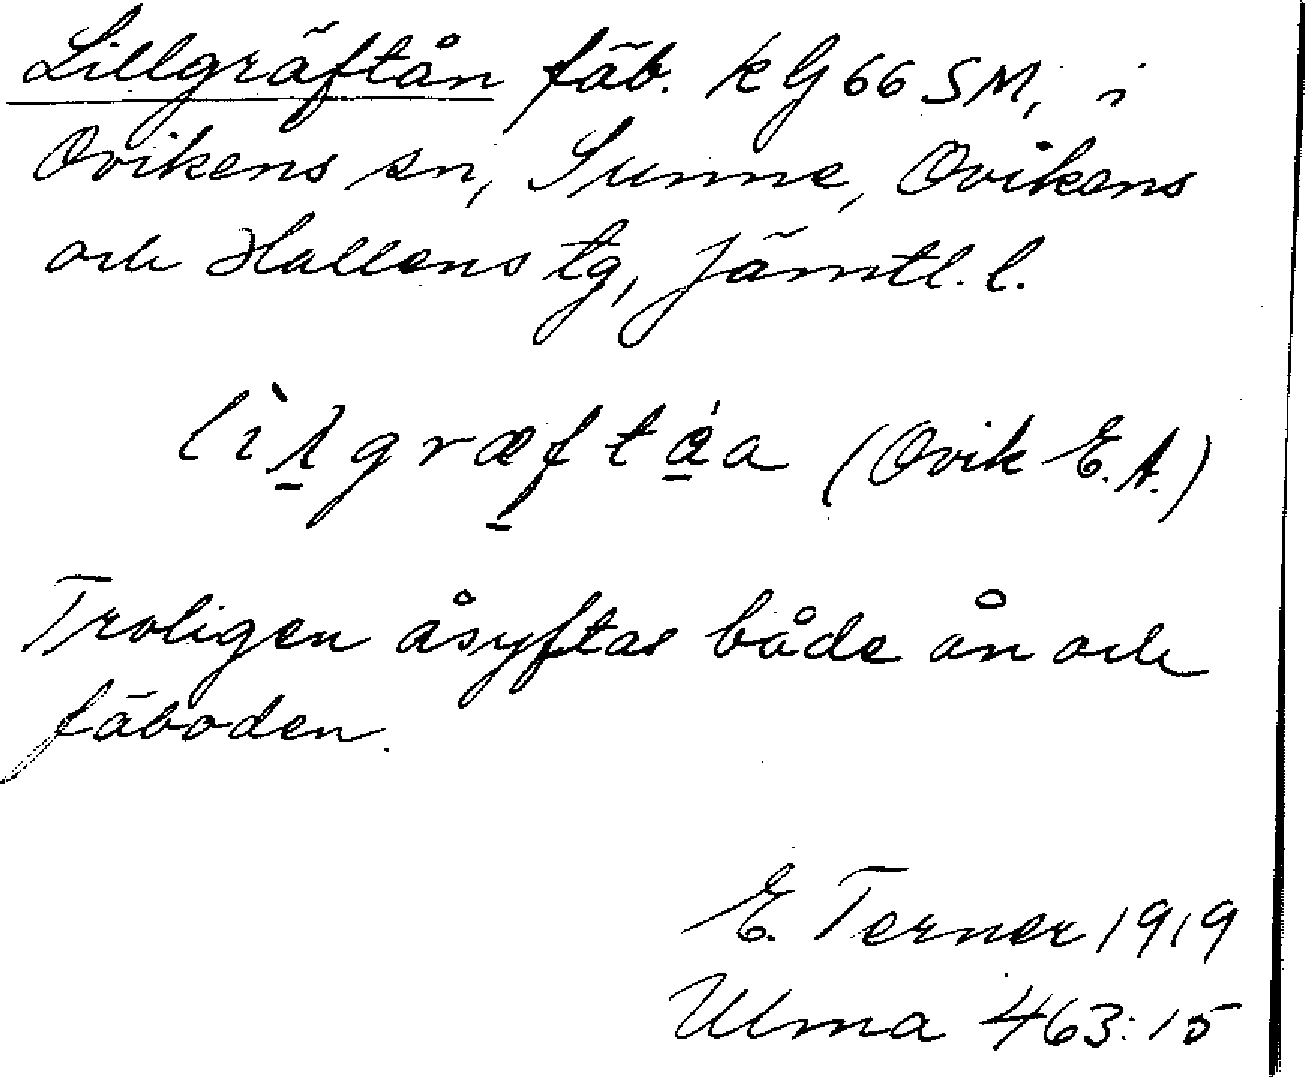 Lillgräftån fäb. kG 66 SM, i
Ovikens sn, Sunne, Ovikens
och Hallens tg, Jämtl. l.
(Ovik E. A.)
Troligen åsyftas både ån och
fäboden.
E. Terner 1919
Ulma 463:15